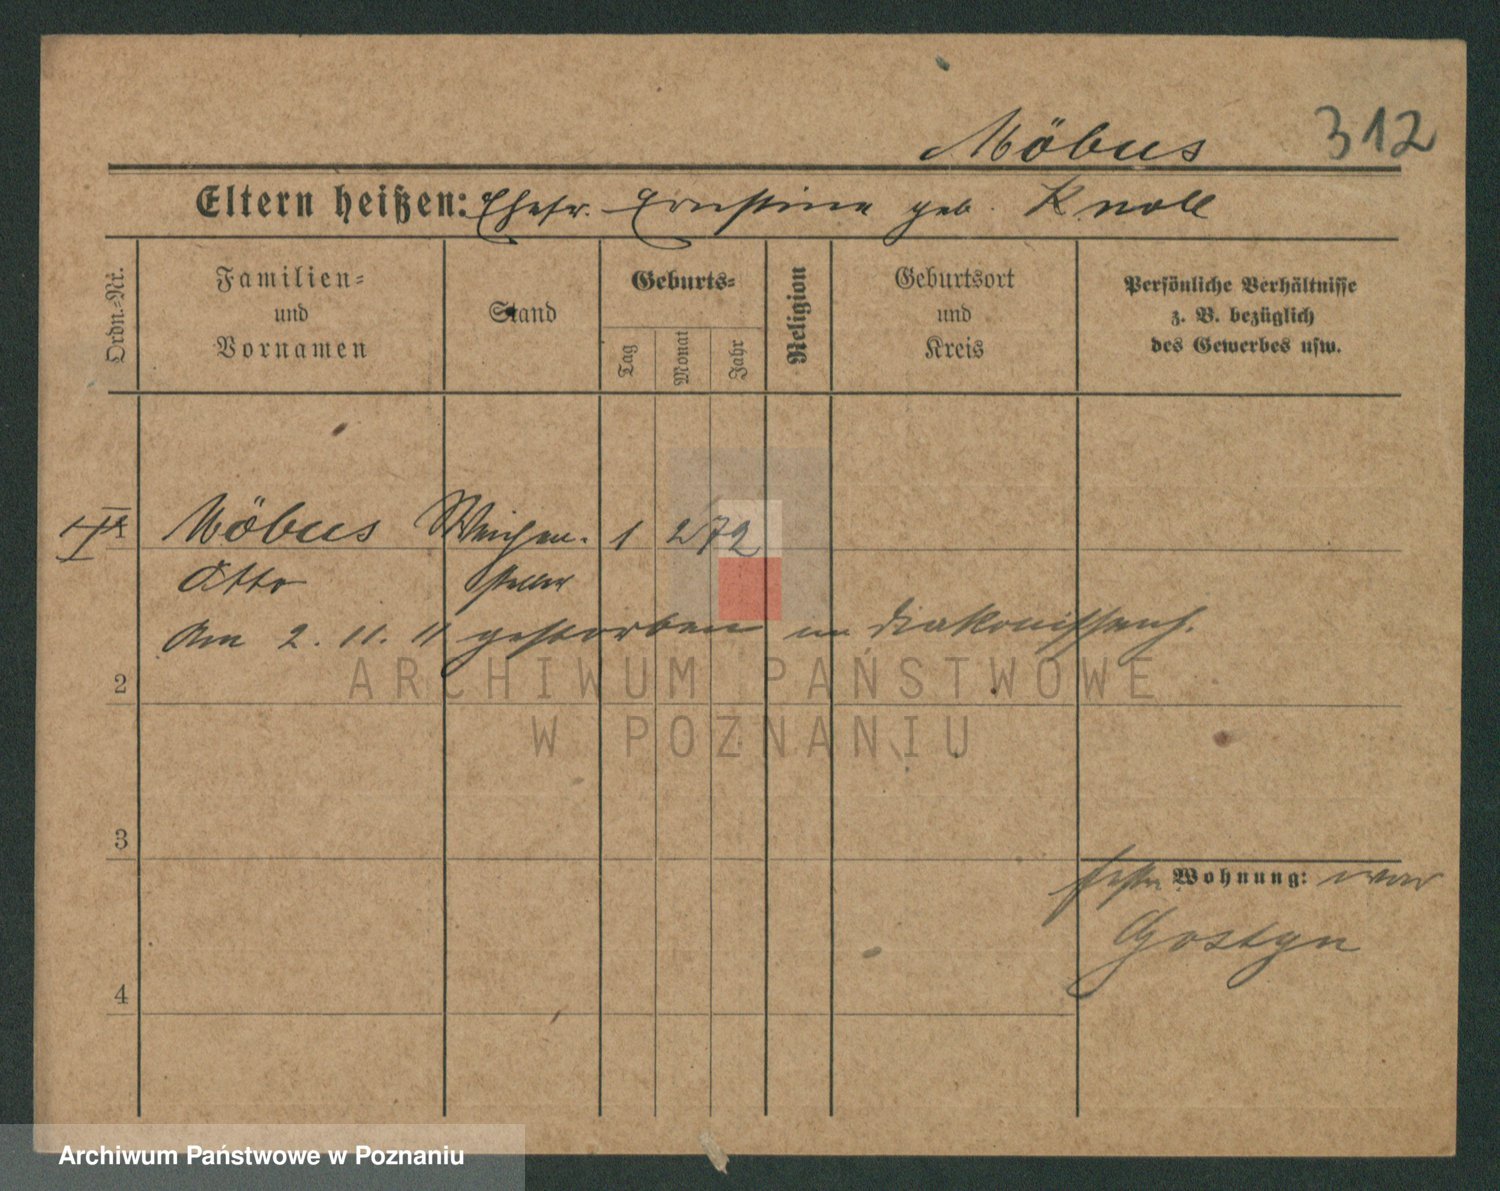 Möbus 312
Eltern heißen: Ehefr. Ernstine geb. Knoll
Ordn.-Nr.
Familien-
und
Vornamen
Stand
Geburts-
Tag
Monat
Jahr
Religion
Geburtsort
und
Kreis
Persönliche Verhältnisse
z. B. bezüglich
des Gewerbes usw.
Möbus Weichen- 1 2 72
Otto steller
Am 2. 11. 11 gestorben im Diakonissenh.
ARCHIWUM PAŃSTWOWE
2
W POZNANIU
3
feste Wohnung: war
Gostyn
4
Archiwum Państwowe w Poznaniu